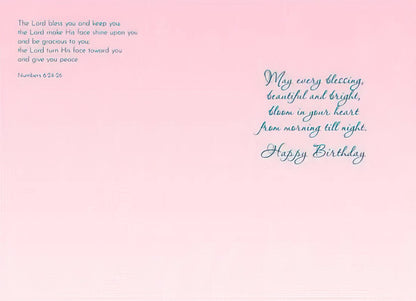 The Lord bless you and keep you;
the Lord make His face shine upon you
and be gracious to you;
the Lord turn His face toward you
and give you peace.
Numbers 6:24-26
May every blessing,
beautiful and bright,
bloom in your heart
from morning till night.
Happy Birthday